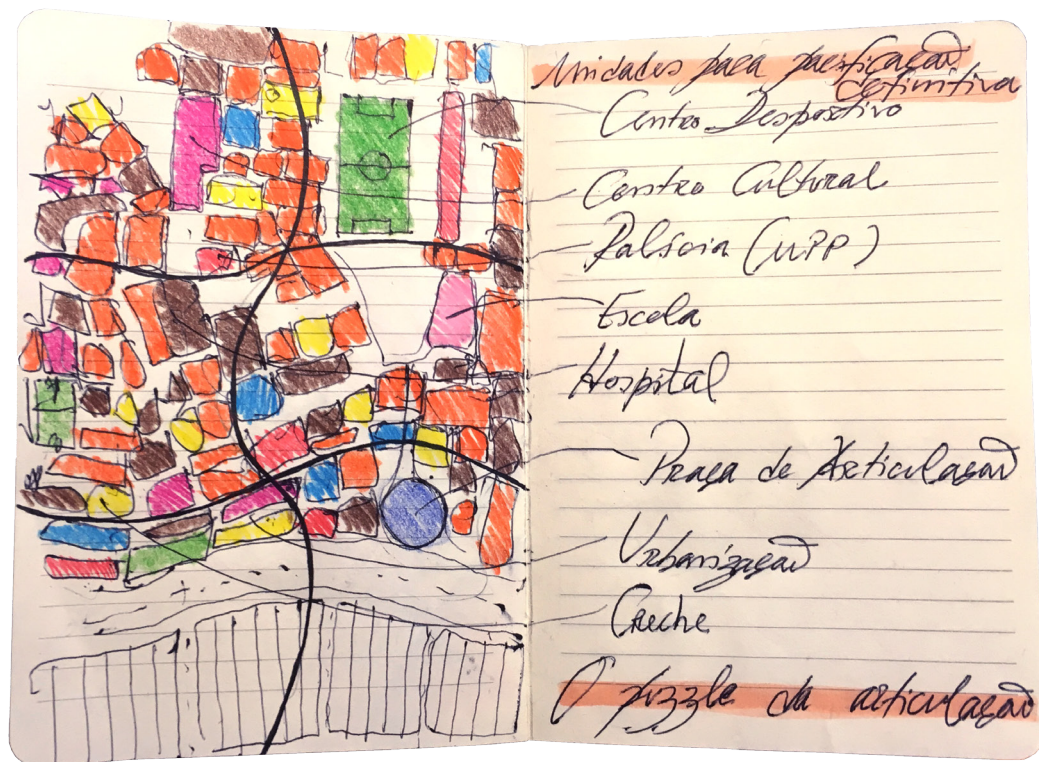 Unidades para pacificação
definitiva
Centro Desportivo
Centro Cultural
Polícia (UPP)
Escola
Hospital
Praça de Articulação
Urbanização
Creche
O puzzle da articulação